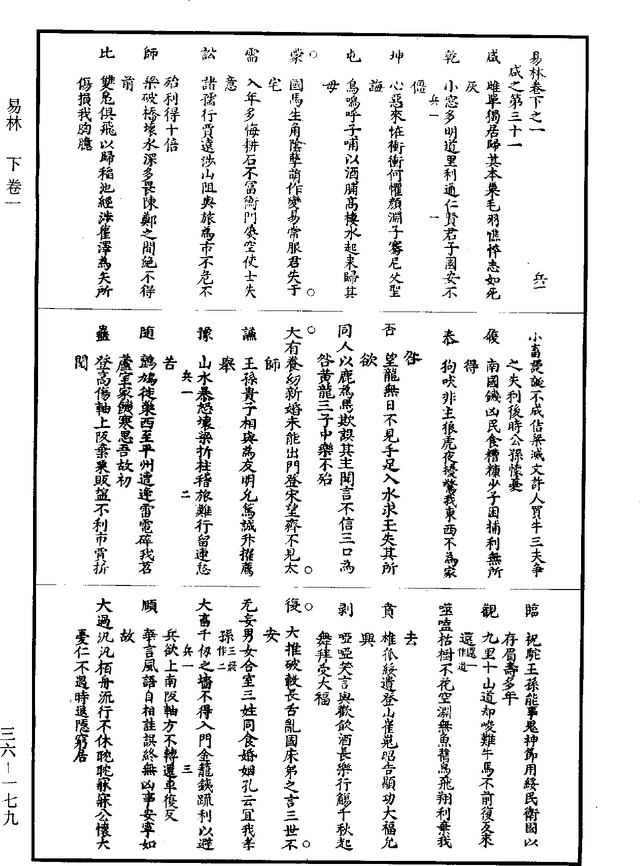 易林卷下之一
咸之第三十一　兵一
咸　雌單獨居歸其本巢毛羽憔悴志如死
灰
乾　小窓多明道里利通仁賢君子國安不
僵　兵一　一
坤　心惡來怪衝衝何懼顏淵子騫尼父聖
誨
屯　鳥鳴呼子哺以酒脯高樓水起來歸其
母
蒙　國馬生角陰孽萌作變易常服君失于
宅
需　入年多悔耕石不富衡門屢空使士失
意
訟　諸孺行賈遠涉山阻與旅為市不危不
殆利得十倍
師　梁破橋壞水深多畏陳鄭之間絕不得
前
比　雙鳧俱飛以歸稻池經涉雚澤為矢所
傷損我胸臆
小畜謾誕不成倍梁滅文許人買牛三夫爭
之失利後時公孫懷憂
履　南國饑凶民食糟糠少子困捕利無所
得
泰　狗吠非主狼虎夜擾驚我東西不為家
咎
否　望龍無日不見手足入水求玉失其所
欲
同人以鹿為馬欺誤其主聞言不信三口為
咎黃龍三子中樂不殆
大有養幼新婚未能出門登宋望齊不見太
師
謙　王孫貴子相與為友明允篤誠升擢薦
舉
豫　山水暴怒壞梁折柱稽旅難行留連愁
苦　兵一　二
隨　鸇鳩徙巢西至平州遭逢雷電碎我葦
蘆室家饑寒思吾故初
蠱　登高傷軸上阪棄粟販鹽不利市賈折
閱
臨　祝駝王孫能事鬼神節用綏民衛國以
存眉壽多年
觀　九里十山道却峻難牛馬不前復反來
還還一作道
噬嗑枯樹不花空淵無魚鷖鳥飛翔利棄我
去
賁　雄狐綏遺登山崔嵬昭告顯功大福允
興
剝　啞啞笑言與歡飲酒長樂行觴千秋起
舞拜受大福
復　大推破轂長舌亂國床笫之言三世不
安
无妄男女合室三姓同食婚姻孔云宜我孝
孫三一作二
大畜千仞之墻不得入門金籠鐵疏利以避
兵欲上南阪軸方不轉還車復反　兵一　三
頤　華言風語自相詿誤終無凶事安寧如
故
大過汎汎栢舟流行不休耿耿寐寐公懷大
憂仁不遇時退隱窮居
易林　下卷一
三六－一七九